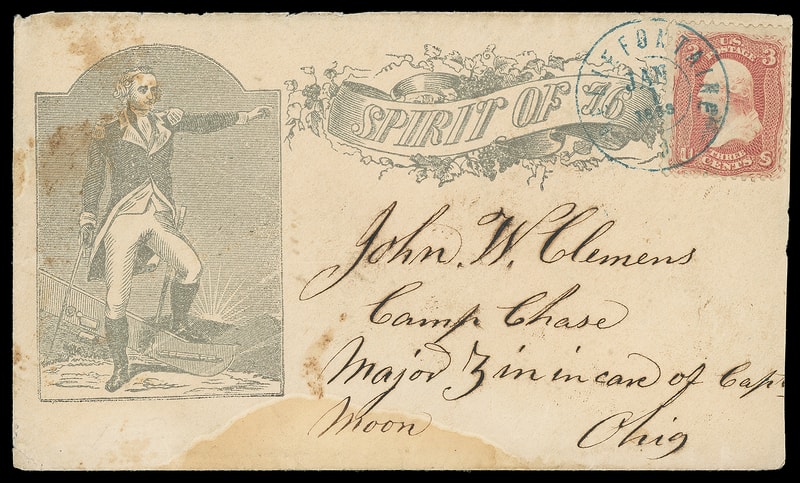 SPIRIT OF 76
JAN
1
U.S.
POSTAGE
3 3
THREE
U CENTS S
John. W. Clemens
Camp Chase
Major Z in in care of Capt
Moon Ohio